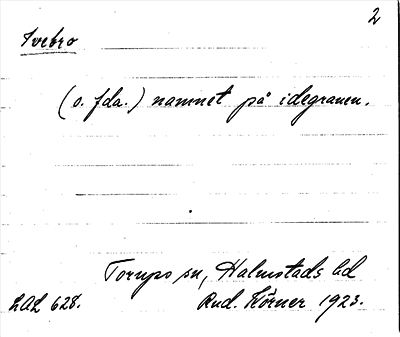 2
Ivebro
(o. fda.) namnet på idegranen.
Torups sn, Halmstads hd
LAL 628. Rud. Körner 1923.